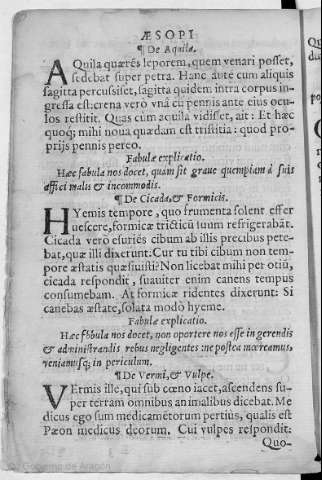 ÆSOPI
¶ De Aquila.
AQuila quærēs leporem, quem venari posset,
sedebat super petra. Hanc autē cum aliquis
sagitta percussiset, sagitta quidem intra corpus in-
gressa est: crena verò vnà cū pennis ante eius ocu-
los restitit. Quas cùm aquila vidisset, ait: Et hæc
quoq; mihi noua quædam est tristitia: quod pro-
prijs pennis pereo.
Fabulæ explicatio.
Hæc fabula nos docet, quàm sit graue quempiam à suis
affici malis & incommodis.
¶ De Cicada, & Formicis.
HYemis tempore, quo frumenta solent efser
uescere, formicæ triticū suum refrigerabāt.
Cicada verò esuriēs cibum ab illis precibus pete-
bat, quæ illi dixerunt: Cur tu tibi cibum non tem-
pore æstatis quæsiuisti? Non licebat mihi per otiū,
cicada respondit, suauiter enim canens tempus
consumebam. At formicæ ridentes dixerunt: Si
canebas æstate, solata modò hyeme.
Fabulæ explicatio.
Hæc fabula nos docet, non oportere nos esse in gerendis
& administrandis rebus negligentes: ne postea mœreamus,
veniamusq; in periculum.
¶ De Vermi, & Vulpe.
VErmis ille, qui sub cœno iacet, ascendens su-
per terram omnibus animalibus dicebat. Me
dicus ego sum medicamētorum peritus, qualis est
Pæon medicus deorum. Cui vulpes respondit:
Quo-
© Gobierno de Aragón